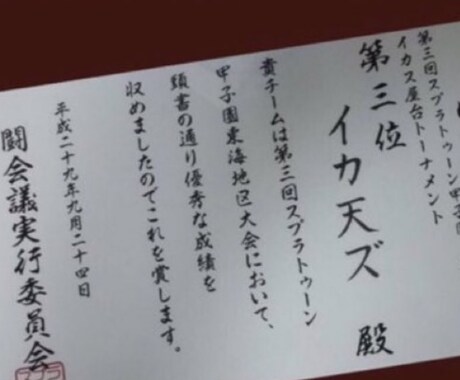 第三回スプラトゥーン甲子園
イカス屋台トーナメント
第三位
イカ天ズ 殿
貴チームは第三回スプラトゥーン
甲子園東海地区大会において、
頭書の通り優秀な成績を
収めましたのでこれを賞します。
平成二十九年九月二十四日
闘会議実行委員会